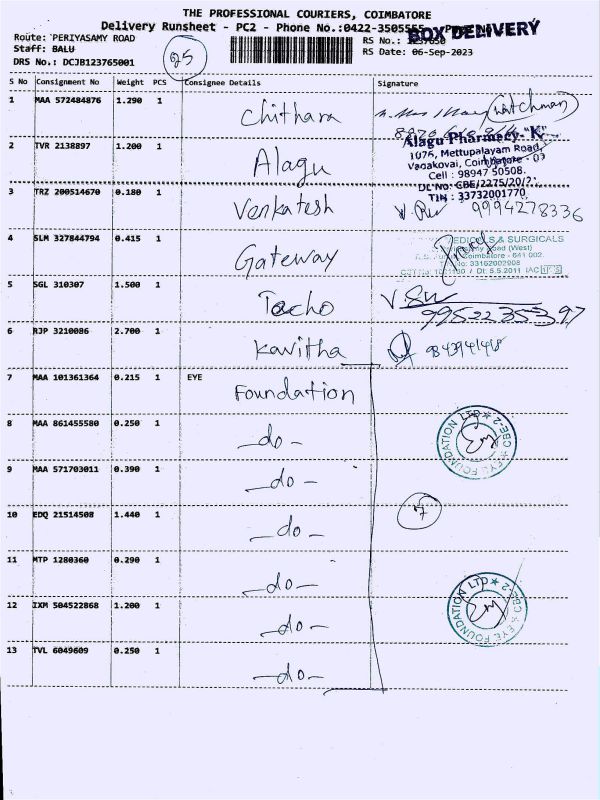 THE PROFESSIONAL COURIERS, COIMBATORE
Delivery Runsheet - PC2 - Phone No.:0422-3505555
BOX DELIVERY
Route: PERIYASAMY ROAD
Staff: BALU
DRS No.: DCJB123765001
25
RS No.:
RS Date: 06-Sep-2023
S No Consignment No Weight PCS Consignee Details Signature
1 MAA 572484876 1.290 1 Chithara (Watchman)
2 TVR 2138897 1.200 1 Alagu
Alagu Pharmacy "K"
1076, Mettupalayam Road,
Vadakovai, Coimbatore - 03
Cell : 98947 50508.
DL No: CBE/2275/20/21
TIN : 33732001770
3 TRZ 200514670 0.180 1 Venkatesh 9994278336
4 SLM 327844794 0.415 1 Gateway
MEDICALS & SURGICALS
Road (West)
Coimbatore - 641 002.
No: 33162002908
Dt: 5.5.2011
5 SGL 310307 1.500 1 Tacho 9952235397
6 RJP 3210086 2.700 1 Kavitha
7 MAA 101361364 0.215 1 EYE Foundation
8 MAA 861455580 0.250 1 -do-
EYE FOUNDATION LTD ★ CBE-2 ★
9 MAA 571703011 0.390 1 -do-
7
10 EDQ 21514508 1.440 1 -do-
11 MTP 1280360 0.290 1 -do-
12 IXM 504522868 1.200 1 -do-
EYE FOUNDATION LTD ★ CBE-2 ★
13 TVL 6049609 0.250 1 -do-